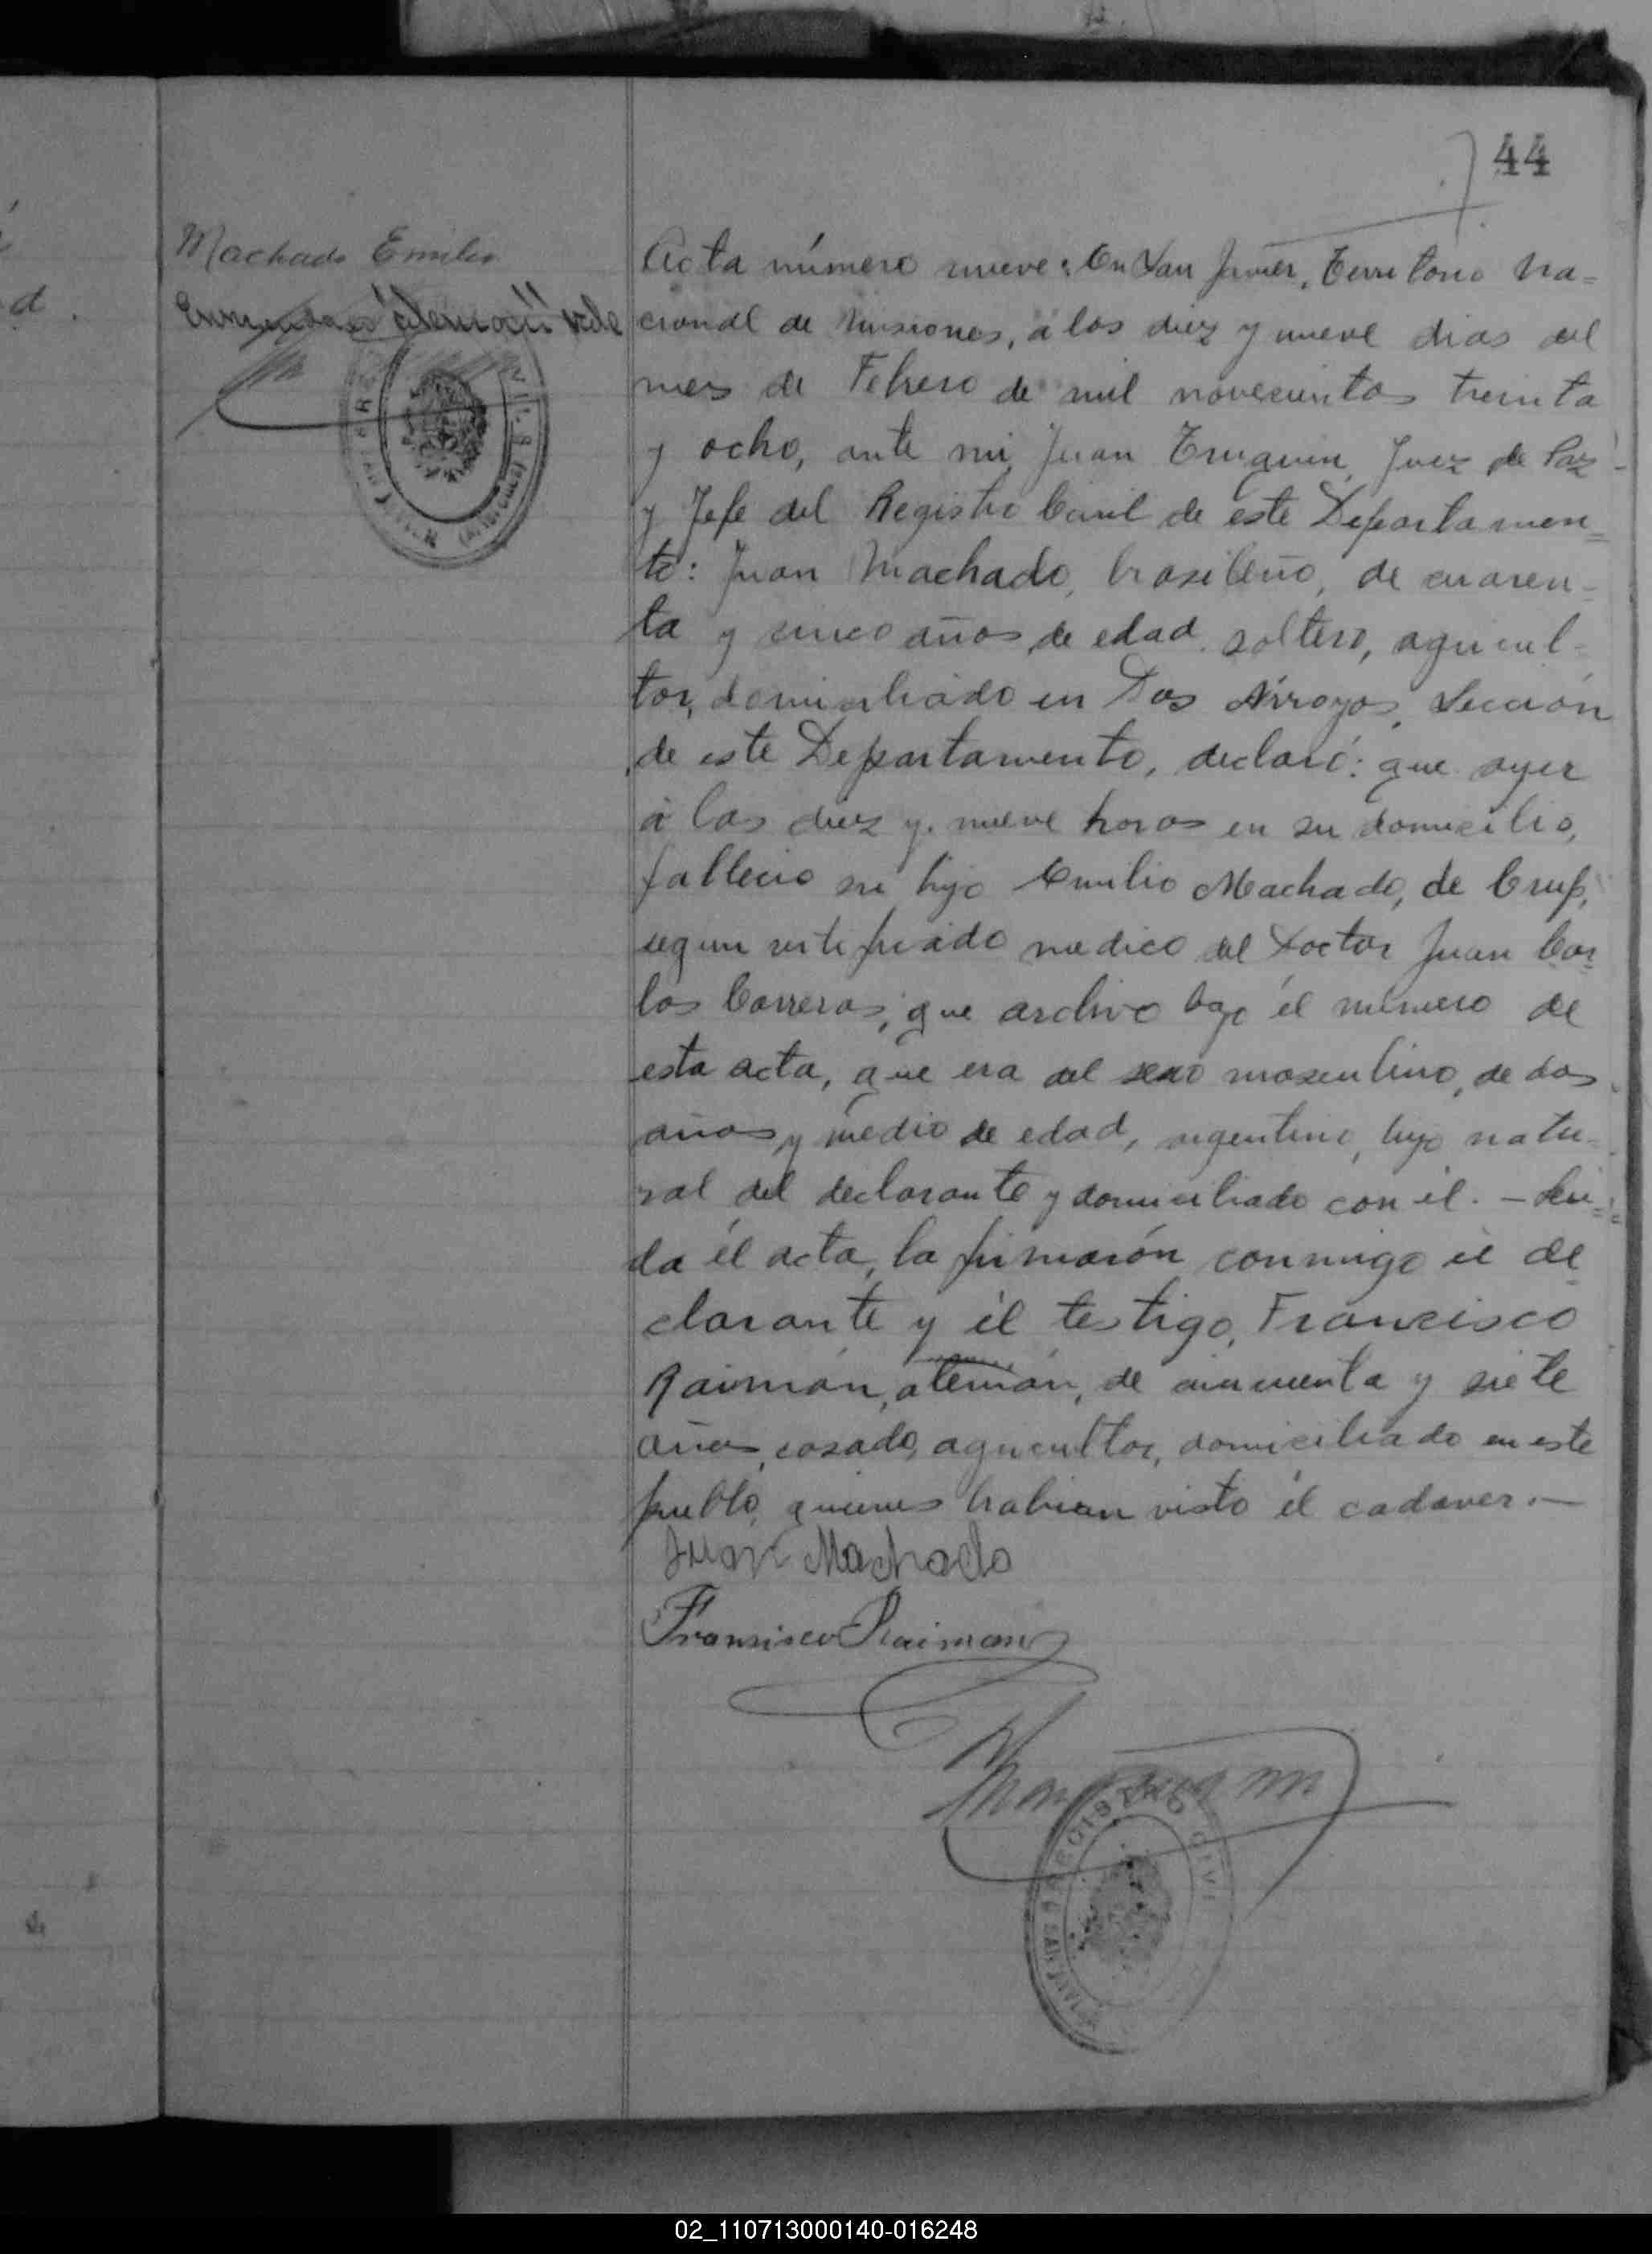 44
Machado Emilio
Enmendado "alemán" vale
Acta número nueve: En San Javier, Territorio Na=
cional de Misiones, á los diez y nueve dias del
mes de Febrero de mil novecientos treinta
y ocho, ante mi, Juan Truguin, Juez de Paz
y Jefe del Registro Civil de este Departamen=
to: Juan Machado, brasileño, de cuaren=
ta y cinco años de edad, soltero, agricul=
tor, domiciliado en Dos Arroyos, Sección
de este Departamento, declaró: que ayer
á las diez y nueve horas en su domicilio,
fallecio su hijo Emilio Machado, de Crup,
segun certificado medico del Doctor Juan Car=
los Carreras, que archivo bajo él número de
esta acta, que era del sexo masculino, de dos
años y medio de edad, argentino, hijo natu=
ral del declarante y domiciliado con él. — Lei=
da él acta, la firmarón conmigo él de
clarante y él testigo, Francisco
Raimán, alemán, de cincuenta y siete
años, casado, agricultor, domiciliado en este
pueblo, quienes habian visto él cadaver.—
Juan Machado
Fransisco Raiman
REGISTRO CIVIL
02_110713000140-016248